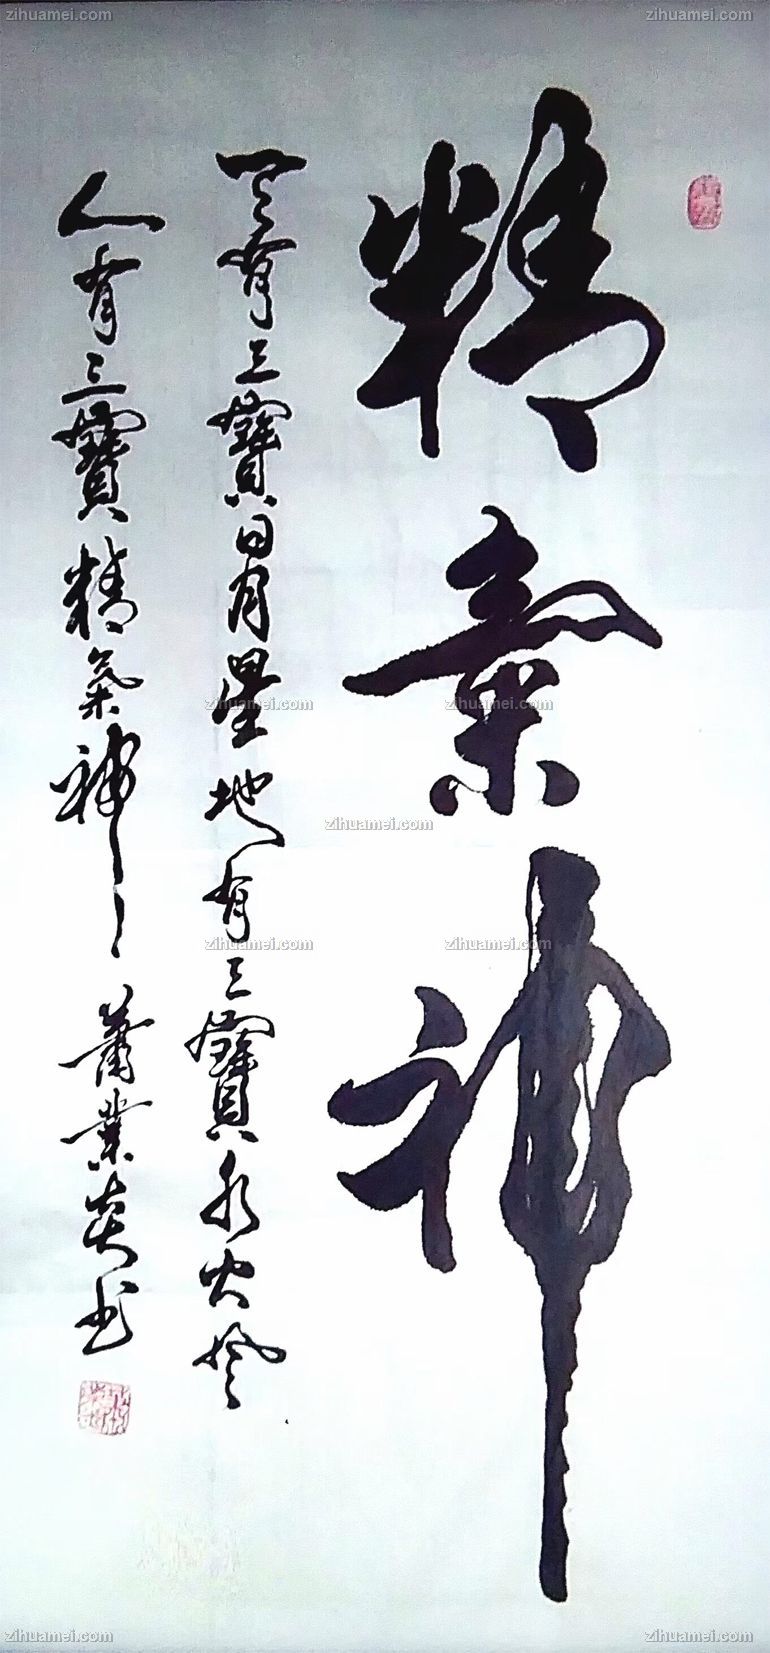 精氣神
天有三寶日月星地有三寶水火風
人有三寶精氣神 蕭業炎书
zihuamei.com
zihuamei.com
zihuamei.com
zihuamei.com
zihuamei.com
zihuamei.com
zihuamei.com
zihuamei.com
zihuamei.com